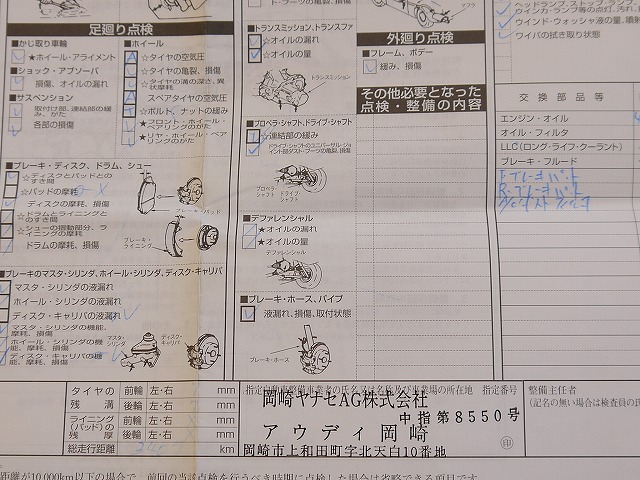 足廻り点検
■かじ取り車輪
ホイール・アライメント
■ショック・アブソーバ
損傷、オイルの漏れ
■サスペンション
取付け部、連結部の緩み、がた
各部の損傷
■ホイール
☆タイヤの空気圧
☆タイヤの亀裂、損傷
☆タイヤの溝の深さ、異状摩耗
スペアタイヤの空気圧
☆ボルト、ナットの緩み
☆フロント・ホイール・ベアリングのがた
★リヤ・ホイール・ベアリングのがた
■ブレーキ・ディスク、ドラム、シュー
☆ディスクとパッドとのすき間
☆パッドの摩耗
ディスクの摩耗、損傷
☆ドラムとライニングとのすき間
☆シューの摺動部分、ライニングの摩耗
ドラムの摩耗、損傷
ブレーキ・パッド
ブレーキ・ライニング
■ブレーキのマスタ・シリンダ、ホイール・シリンダ、ディスク・キャリパ
マスタ・シリンダの液漏れ
ホイール・シリンダの液漏れ
ディスク・キャリパの液漏れ
マスタ・シリンダの機能、摩耗、損傷
ホイール・シリンダの機能、摩耗、損傷
ディスク・キャリパの機能、摩耗、損傷
マスタ・シリンダ
ディスク・キャリパ
ドラーツの亀裂、損傷
■トランスミッション、トランスファ
☆オイルの漏れ
☆オイルの量
トランスミッション
■プロペラ・シャフト、ドライブ・シャフト
☆連結部の緩み
ドライブ・シャフトのユニバーサル・ジョイント部ダスト・ブーツの亀裂、損傷
プロペラ・シャフト
ドライブ・シャフト
■デファレンシャル
★オイルの漏れ
★オイルの量
デファレンシャル
■ブレーキ・ホース、パイプ
液漏れ、損傷、取付状態
ブレーキ・ホース
外廻り点検
■フレーム、ボデー
緩み、損傷
その他必要となった点検・整備の内容
ウインド・ウォッシャ液の量、噴射
ワイパの拭き取り状態
交換部品等
エンジン・オイル
オイル・フィルタ
LLC(ロング・ライフ・クーラント)
ブレーキ・フルード
タイヤの残溝
前輪 左・右 mm
後輪 左・右 mm
ライニング(パッド)の残厚
前輪 左・右 mm
後輪 左・右 mm
総走行距離 km
指定自動車整備事業者の氏名又は名称及び事業場の所在地 指定番号
岡崎ヤナセAG株式会社
中指第8550号
アウディ岡崎
岡崎市上和田町字北天白10番地
印
整備主任者
(記名の無い場合は検査員の氏
距離が10,000km以下の場合で、前回の当該点検を行うべき時期に点検した場合は省略できる項目です。